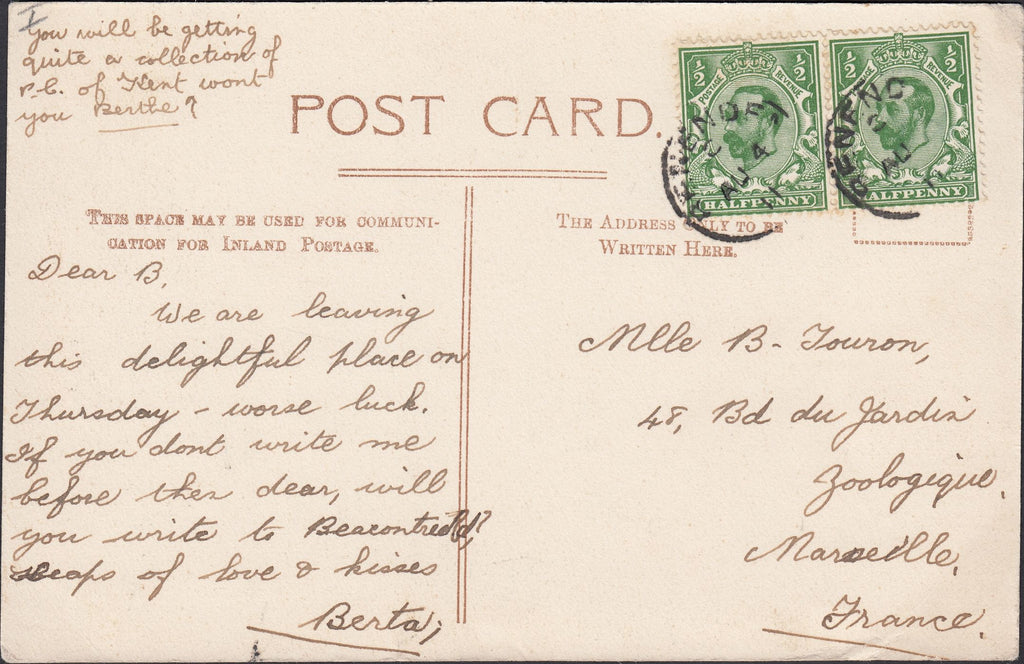 You will be getting
quite a collection of
P.C. of Kent wont
you Berthe?
POST CARD.
½ ½
POSTAGE REVENUE
HALFPENNY
½ ½
POSTAGE REVENUE
HALFPENNY
AU 4
11
AU
11
THIS SPACE MAY BE USED FOR COMMUNI-
CATION FOR INLAND POSTAGE.
THE ADDRESS ONLY TO BE
WRITTEN HERE.
Dear B,
We are leaving
this delightful place on
Thursday - worse luck.
If you dont write me
before then dear, will
you write to Beacontree Rd?
Heaps of love & kisses
Berta;
Mlle B- Touron,
48, Bd du Jardin
Zoologique,
Marseille,
France.